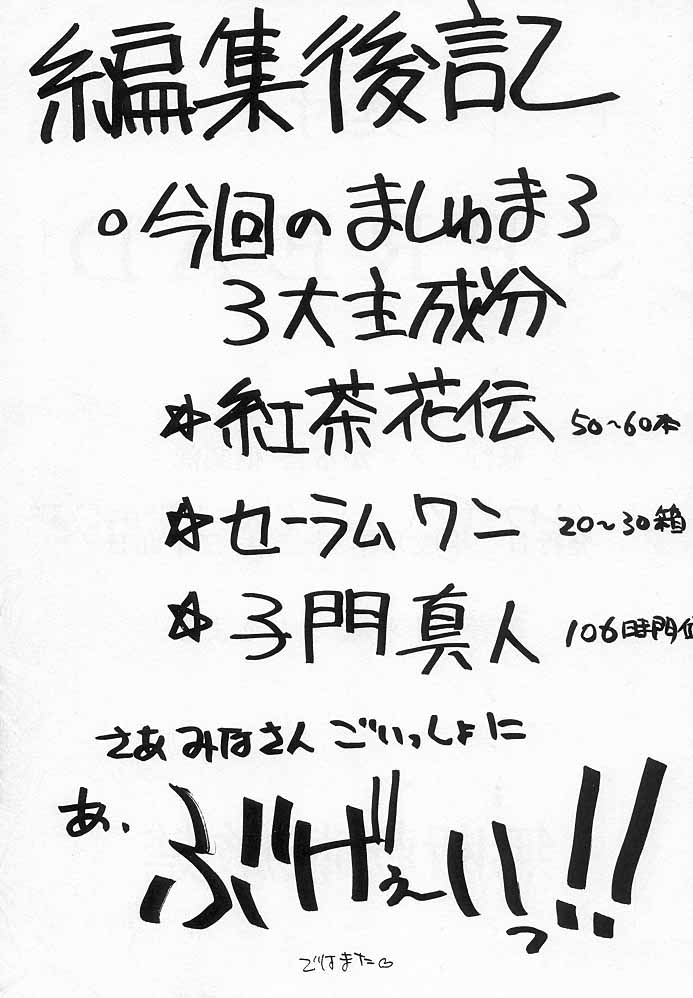 編集後記
○今回のましゅまろ
3大主成分
☆紅茶花伝 50〜60本
☆セーラムワン 20〜30箱
☆子門真人 106時間位
さあみなさんごいっしょに
あ、
ぶげぇいっ!!
ではまた♡